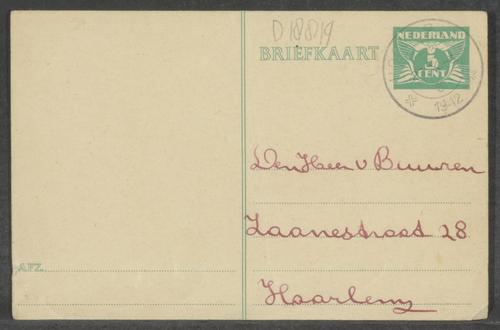 D 18819
BRIEFKAART
NEDERLAND
5
CENT
1942
Den Heer v Buuren
Zaanestraat 28
Haarlem
AFZ.